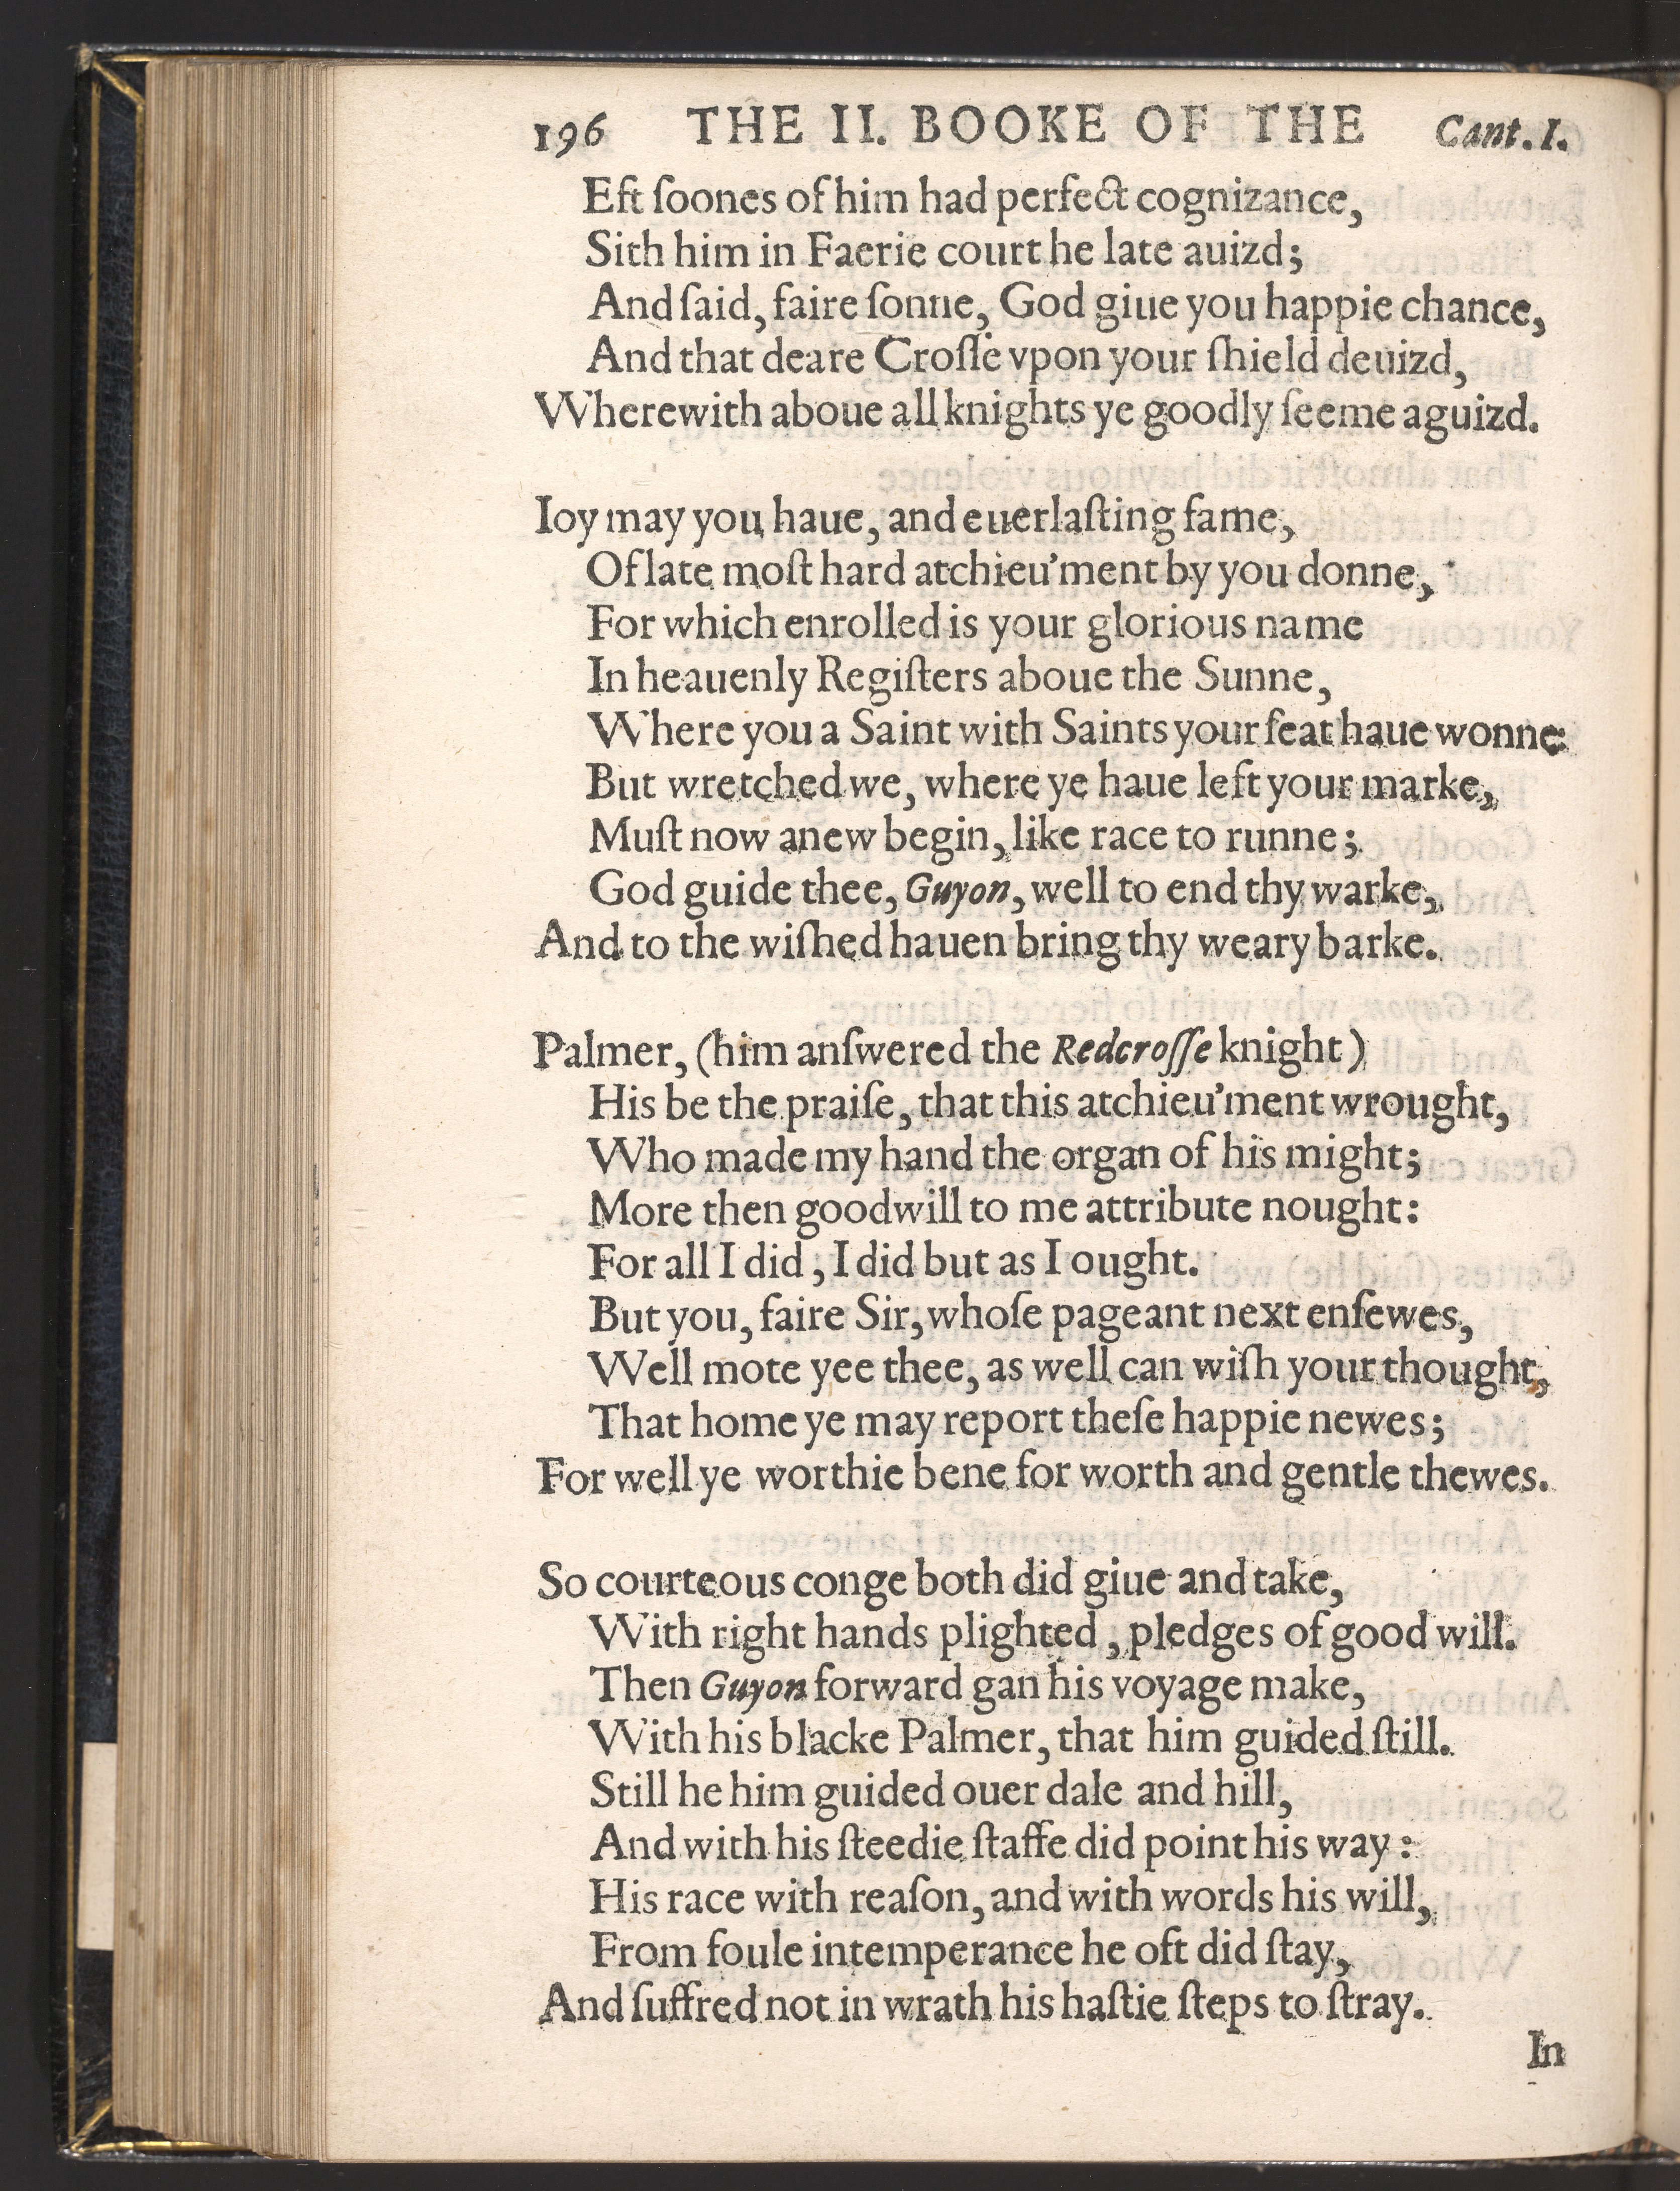 196 THE II. BOOKE OF THE Cant. I.
Eft ſoones of him had perfect cognizance,
Sith him in Faerie court he late auizd;
And ſaid, faire ſonne, God giue you happie chance,
And that deare Croſſe vpon your ſhield deuizd,
Wherewith aboue all knights ye goodly ſeeme aguizd.
Ioy may you haue, and euerlaſting fame,
Of late moſt hard atchieu'ment by you donne,
For which enrolled is your glorious name
In heauenly Regiſters aboue the Sunne,
Where you a Saint with Saints your ſeat haue wonne:
But wretched we, where ye haue left your marke,
Muſt now anew begin, like race to runne;
God guide thee, Guyon, well to end thy warke,
And to the wiſhed hauen bring thy weary barke.
Palmer, (him anſwered the Redcroſſe knight)
His be the praiſe, that this atchieu'ment wrought,
Who made my hand the organ of his might;
More then goodwill to me attribute nought:
For all I did, I did but as I ought.
But you, faire Sir, whoſe pageant next enſewes,
Well mote yee thee, as well can wiſh your thought,
That home ye may report theſe happie newes;
For well ye worthie bene for worth and gentle thewes.
So courteous conge both did giue and take,
With right hands plighted, pledges of good will.
Then Guyon forward gan his voyage make,
With his blacke Palmer, that him guided ſtill.
Still he him guided ouer dale and hill,
And with his ſteedie ſtaffe did point his way:
His race with reaſon, and with words his will,
From foule intemperance he oft did ſtay,
And ſuffred not in wrath his haſtie ſteps to ſtray.
In